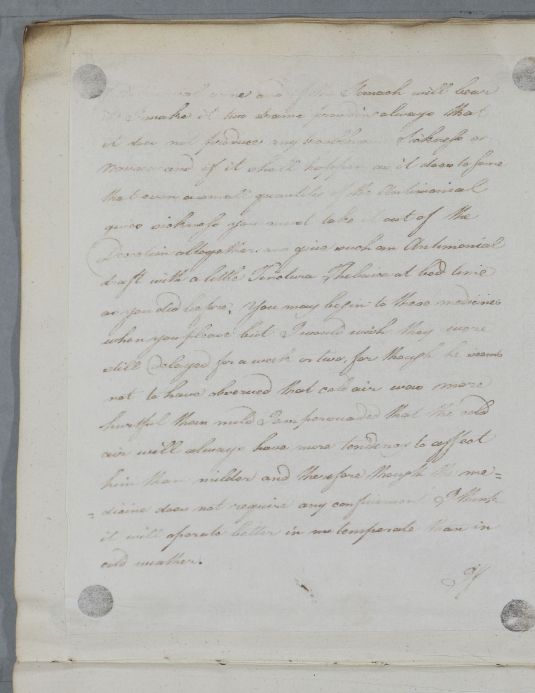 Antimonial wine and if his Stomach will bear
it I make it two drams providing always that
it does not produce any Sickness or
and if it shall happen as it does to some
that even a small quantity of the Antimonial
gives sickness you must take it out of the
Decoction altogether and give such an Antimonial
draft with a little Tinctura Thebaica at bed time
as you did before. You may begin to these medicines
when you please but I would wish they were
still delayed for a week or two, for though he seems
not to have observed that cold air was more
hurtful than mild I am persuaded that the cold
air will always have more tendency to affect
him than milder and therefore though the me=
=dicine does not require any confinement I think
it will operate better in temperate than in
cold weather.
If